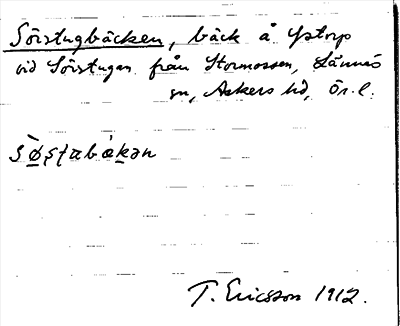 Sörstugbäcken, bäck å Ystorp
vid Sörstugan från Stormossen, Lännäs
sn, Askers hd, Ör. l.
sø̀ʂʈabǽkan
T. Ericsson 1912.